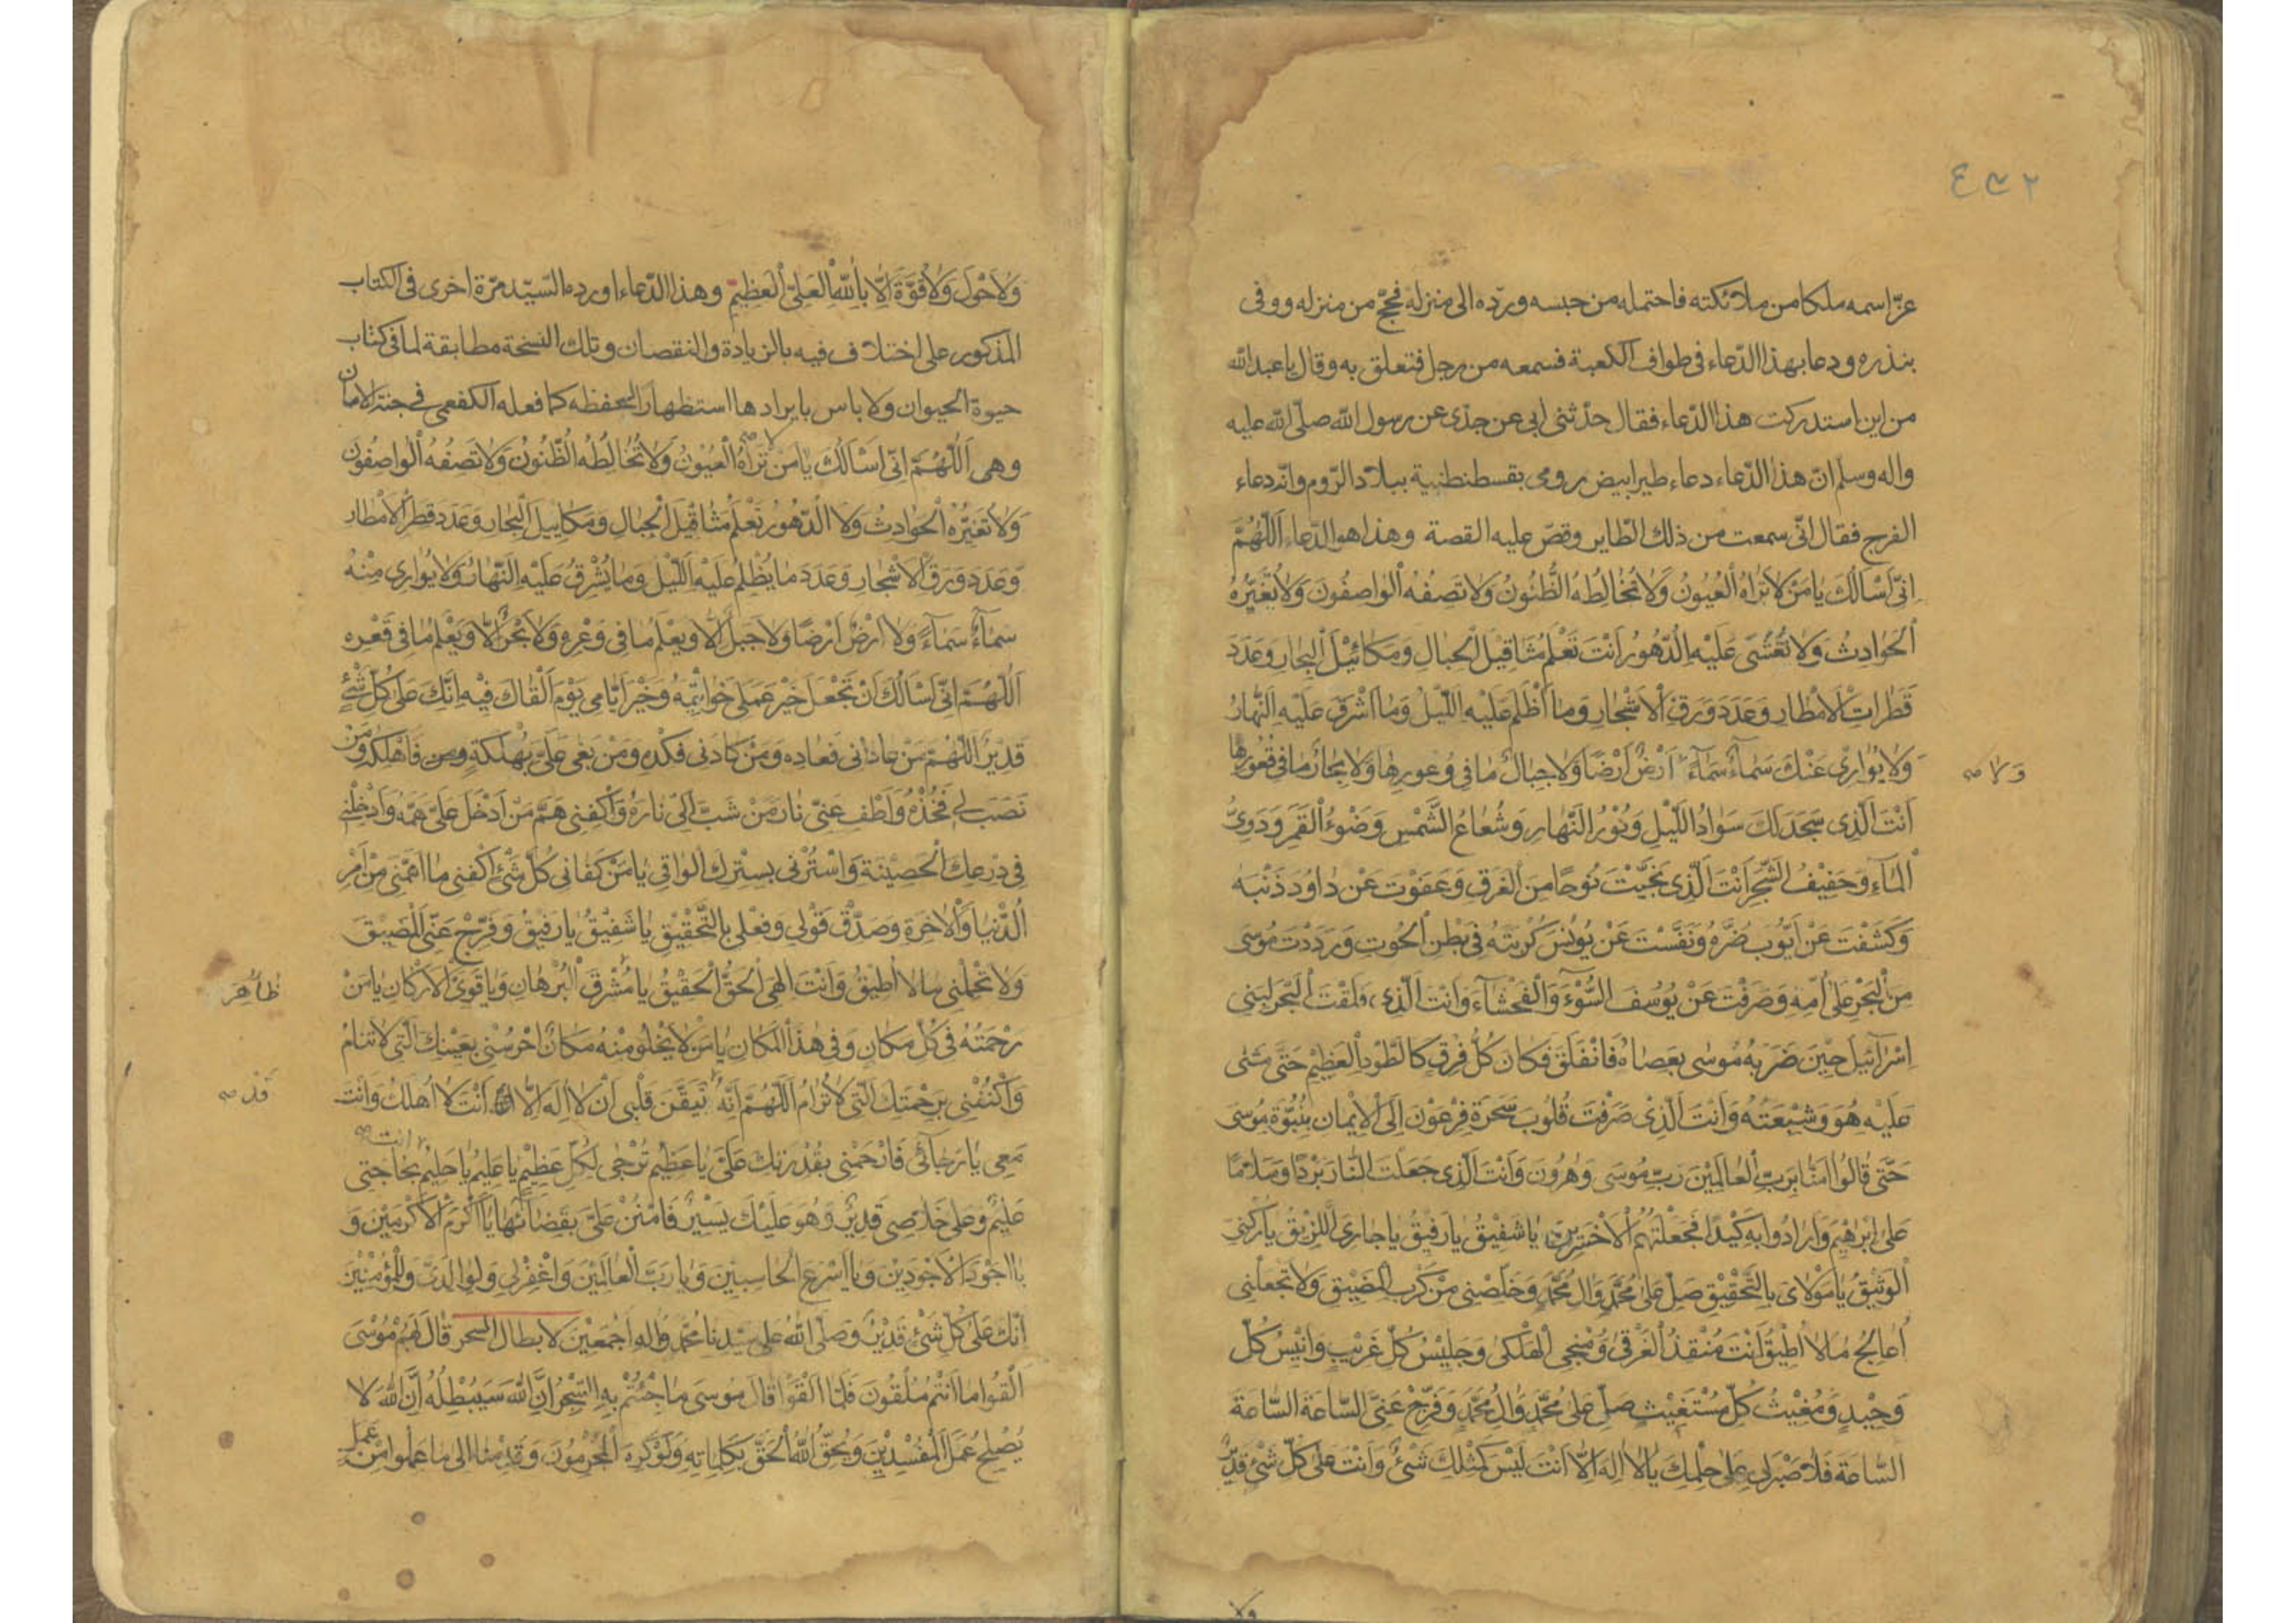 ٤٣٢
عزّ اسمه ملكا من ملائكته فاحتمله من حبسه وردّه الى منزله فحجّ من منزله ووفى
بنذره ودعا بهذا الدّعاء فى طواف الكعبة فسمعه من رجل فتعلق به وقال يا عبد الله
من اين استدركت هذا الدّعاء فقال حدّثنى ابى عن جدّى عن رسول الله صلّى الله عليه
واله وسلم انّ هذا الدّعاء دعاء طير ابيض رومى بقسطنطنية ببلاد الرّوم وانّه دعاء
الفرج فقال انّى سمعت من ذلك الطّاير وقصّ عليه القصة وهذا هو الدّعاء اَللّهُمَّ
اِنّى اَسْاَلُكَ يا مَنْ لا تَراهُ الْعُيُونُ وَلا تُخالِطُهُ الظُّنُونُ وَلا تَصِفُهُ الْواصِفُونَ وَلا تُغَيِّرُهُ
الْحَوادِثُ وَلا تُغْشى عَلَيْهِ الدُّهُورُ اَنْتَ تَعْلَمُ مَثاقِيلَ الْجِبالِ وَمَكائِيْلَ الْبِحارِ وَعَدَدَ
قَطَراتِ الْاَمْطارِ وَعَدَدَ وَرَقِ الْاَشْجارِ وَما اَظْلَمَ عَلَيْهِ اللَّيْلُ وَما اَشْرَقَ عَلَيْهِ النَّهارُ
وَلا يُوارِى عَنْكَ سَماءٌ سَماءً اَرْضٌ اَرْضًا وَلا جِبالٌ ما فى وُعُورِها وَلا بِحارٌ ما فى قُعُورِها
وَلا صح
اَنْتَ الَّذى سَجَدَ لَكَ سَوادُ اللَّيْلِ وَنُورُ النَّهارِ وَشُعاعُ الشَّمْسِ وَضَوْءُ الْقَمَرِ وَدَوِىُّ
الْماءِ وَحَفِيفُ الشَّجَرِ اَنْتَ الَّذى نَجَّيْتَ نُوحًا مِنَ الْغَرَقِ وَعَفَوْتَ عَنْ داوُدَ ذَنْبَهُ
وَكَشَفْتَ عَنْ اَيُّوبَ ضُرَّهُ وَنَفَّسْتَ عَنْ يُونُسَ كُرْبَتَهُ فى بَطْنِ الْحُوتِ وَرَدَدْتَ مُوسى
مِنَ الْبَحْرِ عَلى اُمِّهِ وَصَرَفْتَ عَنْ يُوسُفَ السُّوْءَ وَالْفَحْشاءَ وَاَنْتَ الَّذى فَلَقْتَ الْبَحْرَ لِبَنى
اِسْرائيلَ حِيْنَ ضَرَبَهُ مُوسى بِعَصاهُ فَانْفَلَقَ فَكانَ كُلُّ فِرْقٍ كَالطَّوْدِ الْعَظِيْمِ حَتّى مَشى
عَلَيْهِ هُوَ وَشيْعَتُهُ وَاَنْتَ الَّذِىْ صَرَفْتَ قُلُوبَ سَحَرَةِ فِرْعَوْنَ اِلَى الْاِيْمانِ بِنُبُوَّةِ مُوسى
حَتّى قالُوا امَنّا بِرَبِّ الْعالَمِيْنَ رَبِّ مُوسى وَهرُونَ وَاَنْتَ الَّذى جَعَلْتَ النّارَ بَرْدًا وَسَلامًا
عَلى اِبْرهِيْمَ وَاَرادُوا بِهِ كَيْدًا فَجَعَلْتَهُمُ الْاَخْسَرِيْنَ يا شَفِيْقُ يا رَفِيْقُ يا جارِىَ اللَّزِيْقُ يا رُكْنِىَ
الْوَثِيْقُ يا مَوْلاىَ بِالتَّحْقِيْقِ صَلِّ عَلى مُحَمَّدٍ وَالِ مُحَمَّدٍ وَخَلِّصْنى مِنْ كَرْبِ الْمَضِيْقِ وَلا تَجْعَلْنى
اُعالِجُ ما لا اُطِيْقُ اَنْتَ مُنْقِذُ الْغَرْقى وَمُنْجِى الْهَلْكى وَجَلِيْسُ كُلِّ غَرِيْبٍ وَاَنِيْسُ كُلِّ
وَحِيْدٍ وَمُغِيْثُ كُلِّ مُسْتَغِيْثٍ صَلِّ عَلى مُحَمَّدٍ وَالِ مُحَمَّدٍ وَفَرِّجْ عَنِّى السّاعَةَ السّاعَةَ
السّاعَةَ فَلا صَبْرَ لى عَلى حِلْمِكَ يا لا اِلهَ اِلّا اَنْتَ لَيْسَ كَمِثْلِكَ شَىْءٌ وَاَنْتَ عَلى كُلِّ شَىْءٍ قَدِيْرٌ
ولا
وَلا حَوْلَ وَلا قُوَّةَ اِلّا بِاللهِ الْعَلِىِّ الْعَظِيْمِ وهذا الدّعاء اورده السّيّد مرّة اخرى فى الكتاب
المذكور على اختلاف فيه بالزيادة والنقصان وتلك النسخة مطابقة لما فى كتاب
حيوة الحيوان ولا باس بايرادها استظهارا لحفظه كما فعله الكفعمى فى جنة الامان
وهى اَللّهُمَّ اِنّى اَسْاَلُكَ يا مَنْ لا تَراهُ الْعُيُونُ وَلا تُخالِطُهُ الظُّنُونُ وَلا تَصِفُهُ الْواصِفُونَ
وَلا تُغَيِّرُهُ الْحَوادِثُ وَلا الدُّهُورُ تَعْلَمُ مَثاقِيْلَ الْجِبالِ وَمَكايِيلَ الْبِحارِ وَعَدَدَ قَطْرِ الْاَمْطارِ
وَعَدَدَ وَرَقِ الْاَشْجارِ وَعَدَدَ ما يُظْلِمُ عَلَيْهِ اللَّيْلُ وَما يُشْرِقُ عَلَيْهِ النَّهارُ وَلا يُوارِى مِنْهُ
سَماءٌ سَماءً وَلا اَرْضٌ اَرْضًا وَلا جَبَلٌ اِلّا وَيَعْلَمُ ما فى وَعْرِهِ وَلا بَحْرٌ اِلّا وَيَعْلَمُ ما فى قَعْرِهِ
اَللّهُمَّ اِنّى اَسْاَلُكَ اَنْ تَجْعَلَ خَيْرَ عَمَلى خَواتِيْمَهُ وَخَيْرَ اَيّامى يَوْمَ اَلْقاكَ فِيْهِ اِنَّكَ عَلى كُلِّ شَىْءٍ
قَدِيْرٌ اَللّهُمَّ مَنْ عادانى فَعادِهِ وَمَنْ كادَنى فَكِدْهُ وَمَنْ بَغى عَلَىَّ بِهَلَكَةٍ فَاَهْلِكْهُ وَمَنْ
نَصَبَ لى فَخُذْهُ وَاَطْفِ عَنّى نارَ مَنْ شَبَّ اِلَىَّ نارَهُ وَاكْفِنى هَمَّ مَنْ اَدْخَلَ عَلَىَّ هَمَّهُ وَاَدْخِلْنى
فى دِرْعِكَ الْحَصِيْنَةِ وَاسْتُرْنى بِسِتْرِكَ الْواقى يا مَنْ كَفانى كُلَّ شَىْءٍ اكْفِنى ما اَهَمَّنى مِنْ اَمْرِ
الدُّنْيا وَالْاخِرَةِ وَصَدِّقْ قَوْلى وَفِعْلى بِالتَّحْقِيْقِ يا شَفِيْقُ يا رَفِيْقُ وَفَرِّجْ عَنِّى الْمَضِيْقَ
وَلا تُحَمِّلْنى ما لا اُطِيْقُ وَاَنْتَ اِلهِى الْحَقُّ الْحَقِيْقُ يا مُشْرِقَ الْبُرْهانِ وَيا قَوِىَّ الْاَرْكانِ يا مَنْ
ظاهِرَ
رَحْمَتُهُ فى كُلِّ مَكانٍ وَفى هذَا الْمَكانِ يا مَنْ لا يَخْلُو مِنْهُ مَكانٌ احْرُسْنى بِعَيْنِكَ الَّتى لا تَنامُ
وَاكْنُفْنى بِرَحْمَتِكَ الَّتى لا تُرامُ اَللّهُمَّ اِنَّهُ تَيَقَّنَ قَلْبى اَنْ لا اِلهَ اِلّا اَنْتَ لا اَهْلِكُ وَاَنْتَ
قَدْ صح
انت صح
مَعى يا رَجائى فَارْحَمْنى بِقُدْرَتِكَ عَلَىَّ يا عَظِيْمُ تُرْجى لِكُلِّ عَظِيْمٍ يا عَلِيْمُ يا حَلِيْمُ بِحاجَتى
عَلِيْمٌ وَعَلى خَلاصى قَدِيْرٌ وَهُوَ عَلَيْكَ يَسِيْرٌ فَامْنُنْ عَلَىَّ بِقَضائِها يا اَكْرَمَ الْاَكْرَمِيْنَ وَ
يا اَجْوَدَ الْاَجْوَدِيْنَ وَيا اَسْرَعَ الْحاسِبِيْنَ وَيا رَبَّ الْعالَمِيْنَ وَاغْفِرْلى وَلِوالِدَىَّ وَلِلْمُؤْمِنِيْنَ
اِنَّكَ عَلى كُلِّ شَىْءٍ قَدِيْرٌ وَصَلَّى اللهُ عَلى سَيِّدِنا مُحَمَّدٍ وَالِهِ اَجْمَعِيْنَ لابطال السحر قالَ لَهُمْ مُوْسى
اَلْقُوا ما اَنْتُمْ مُلْقُونَ فَلَمّا اَلْقَوْا قالَ مُوسى ما جِئْتُمْ بِهِ السِّحْرُ اِنَّ اللهَ سَيُبْطِلُهُ اِنَّ اللهَ لا
يُصْلِحُ عَمَلَ الْمُفْسِدِيْنَ وَيُحِقُّ اللهُ الْحَقَّ بِكَلِماتِهِ وَلَوْ كَرِهَ الْمُجْرِمُونَ وَقَدِمْنا اِلى ما عَمِلُوا مِنْ عَمَلٍ